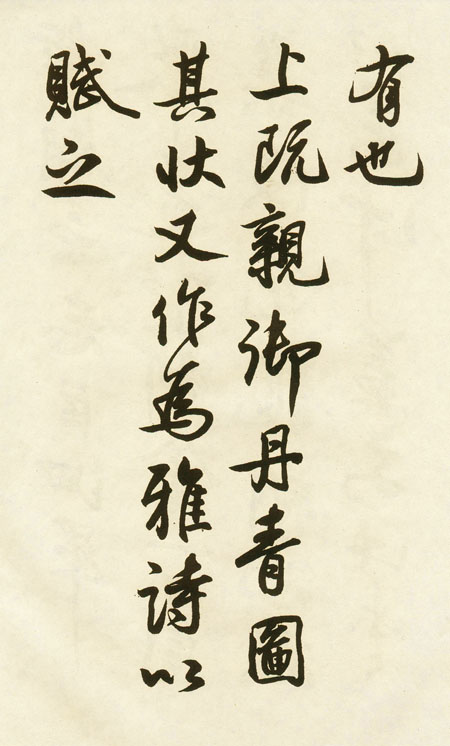 有也
上既親御丹青圖
其状又作為雅詩以
賦之